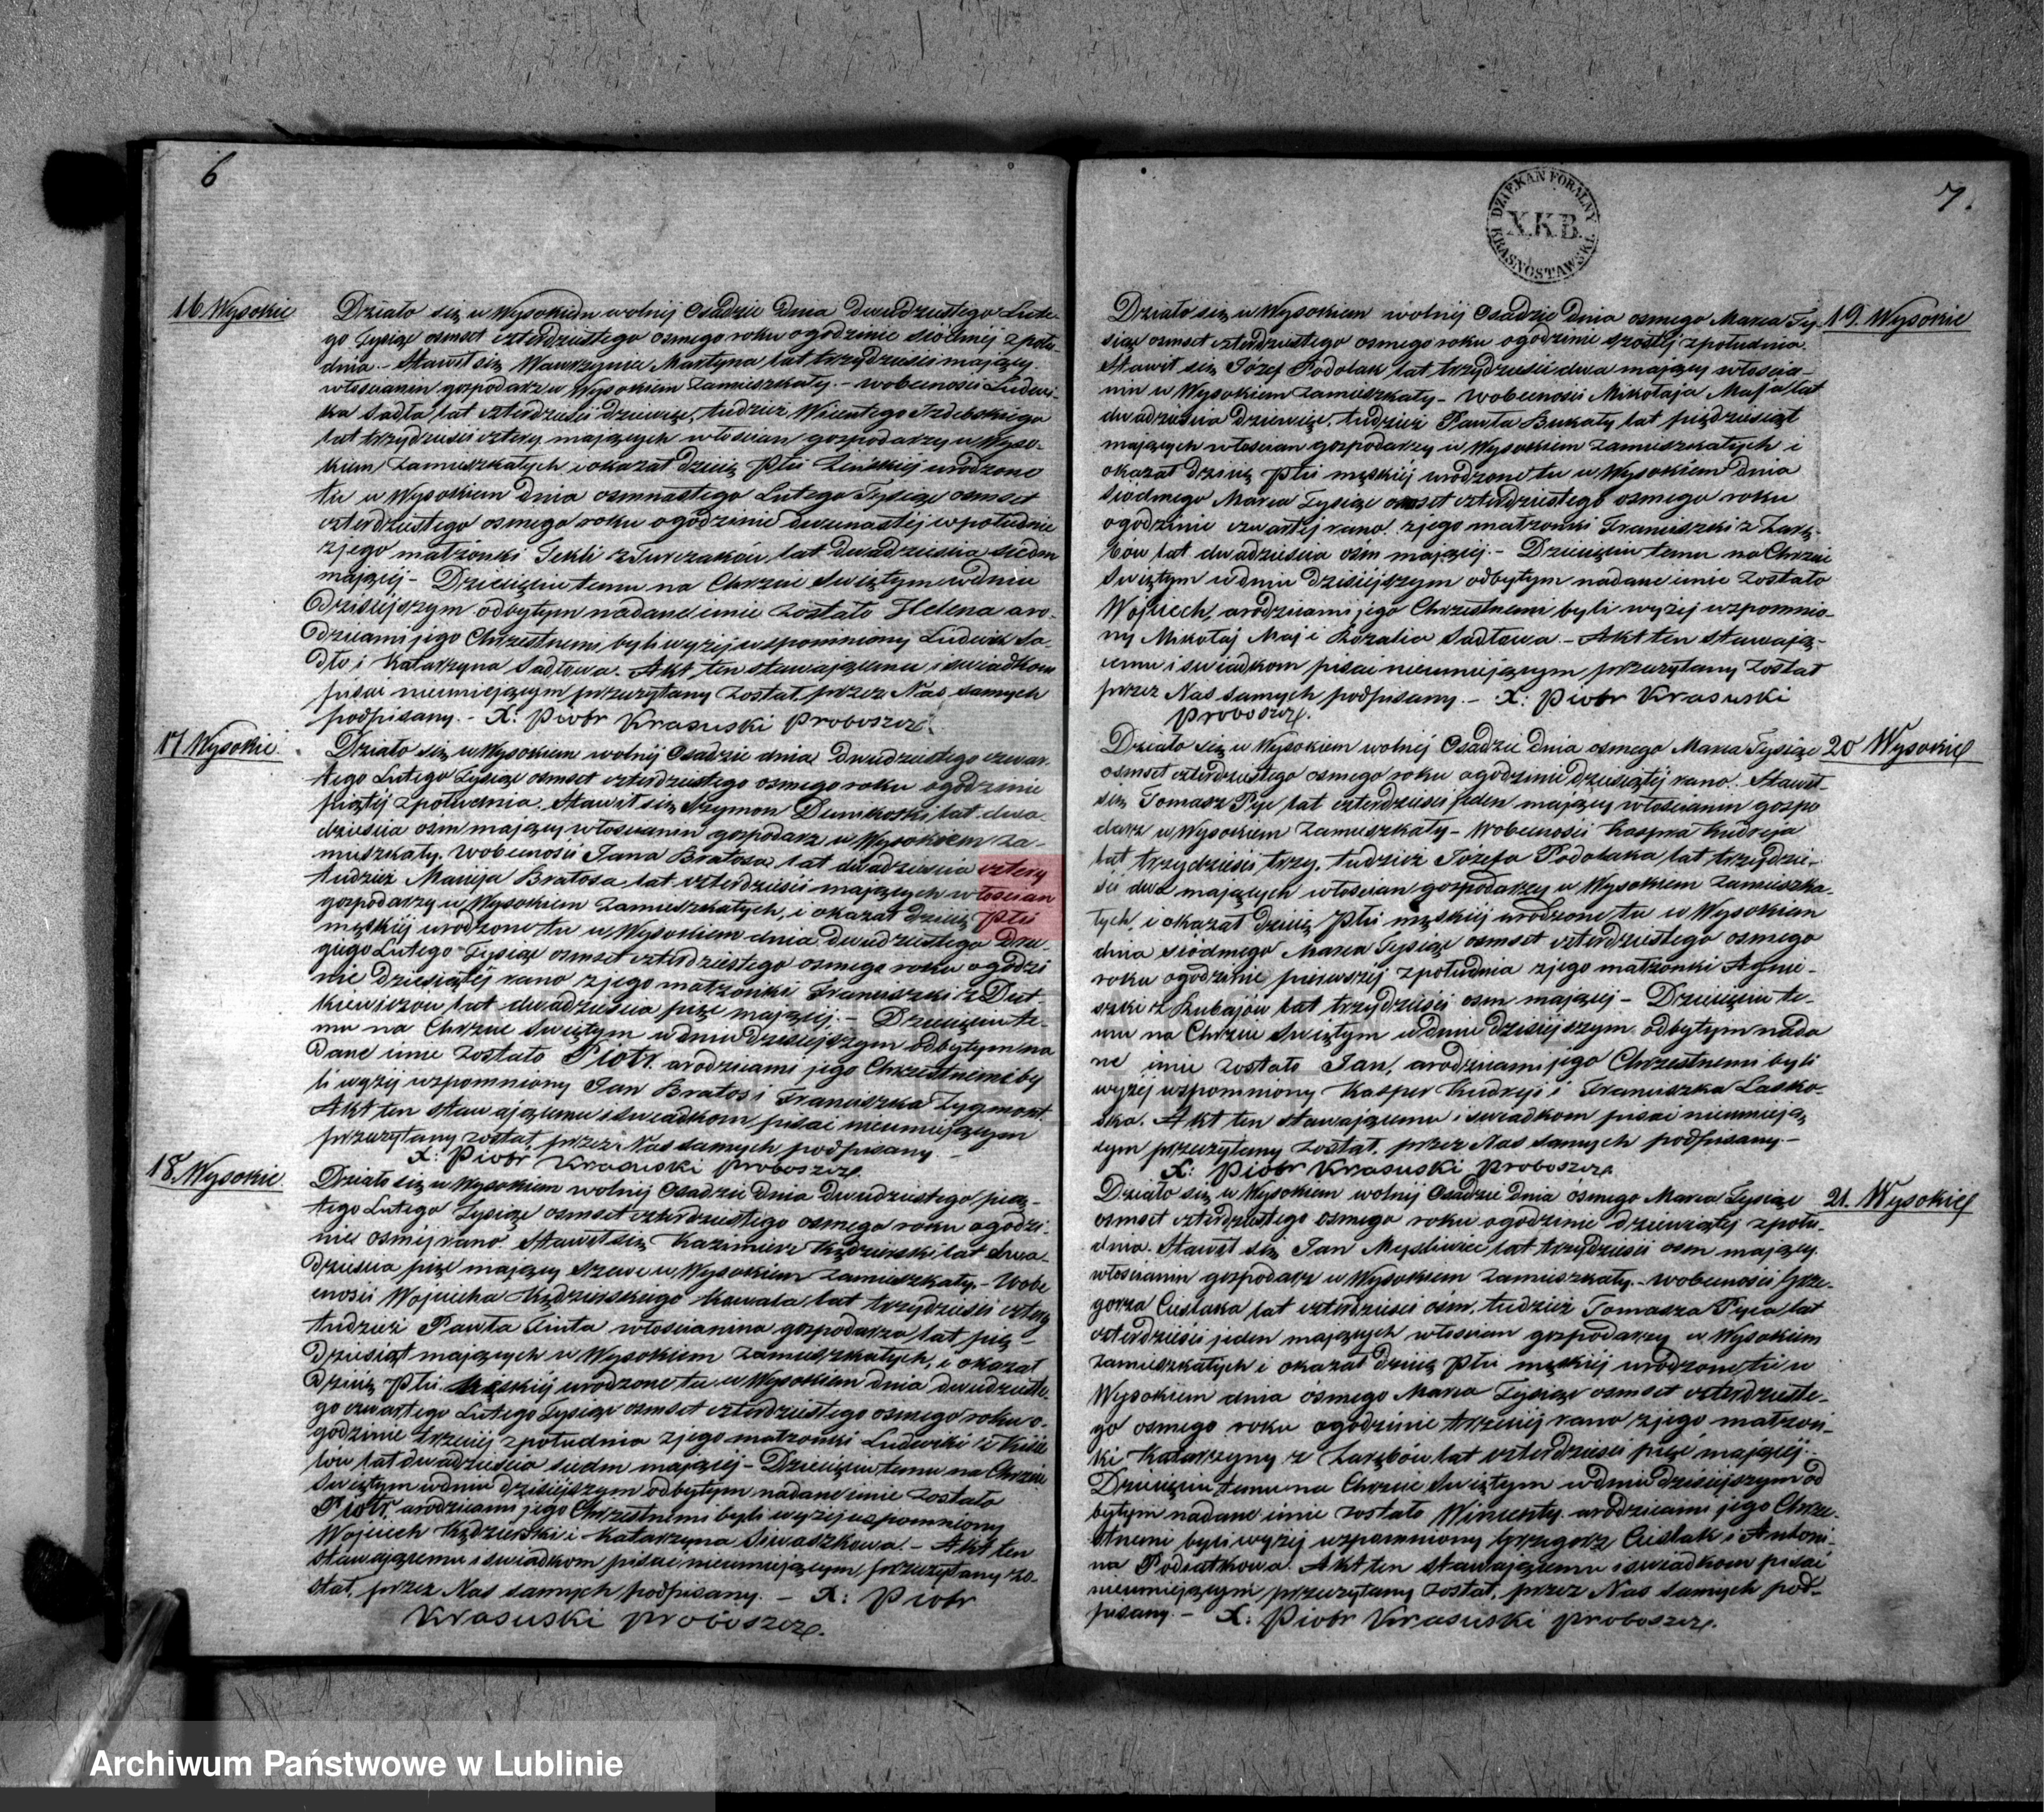 6
16. Wysokie
Działo się w Wysokiem wolnéj Osadzie Dnia dwudziestego Lute-
go Tysiąc osmset czterdziestego osmego roku ogodzinie siódmej zpołu-
dnia. - Stawił się Wawrzyniec Martyna lat trzydzieści mający
włościanin gospodarz w Wysokiem zamieszkały. - wobecności Ludwi-
ka Sadło, lat czterdzieści dziewięć, tudzież Wincentego Izdebskiego
lat trzydzieści cztery mających włościan gospodarzy w Wyso-
kiem zamieszkałych i okazał dziecię płci żeńskiéj urodzone
tu w Wysokiem Dnia osmnastego Lutego Tysiąc osmset
czterdziestego osmego roku ogodzinie dwunastéj wpołudnie
zjego małżonki Tekli z Turczaków, lat dwadzieścia siedm
mającéj - Dziecięciu temu na Chrzcie Świętym wdniu
dzisiéjszym odbytym nadane imie zostało Helena aro-
dzicami jego Chrzestnemi byli wyżéj wspomniony Ludwik Sa-
dło i Katarzyna Sadłowa. - Akt ten stawającemu i świadkom
pisać nieumiejącym przeczytany został, przez Nas samych
podpisany. - X: Piotr Krasuski Proboszcz.
17 Wysokie
Działo się w Wysokiem wolnéj Osadzie dnia Dwudziestego czwar-
tego Lutego Tysiąc osmset czterdziestego osmego roku ogodzinie
piątéj zpołudnia. Stawił się Szymon lat dwa-
dzieścia ośm mający włościanin gospodarz w Wysokiem za-
mieszkały. wobecności Jana Bratosa lat dwadzieścia cztery
tudzież Macieja Bratosa lat czterdzieści mających włościan
gospodarzy w Wysokiem zamieszkałych, i okazał dziecię Płci
męskiéj urodzone tu w Wysokiem dnia dwudziestego Dru-
giego Lutego Tysiąc osmset czterdziestego osmego roku ogodzi
nie dziesiątéj rano zjego małżonki Franciszki z Dut-
kiewiczów lat dwadzieścia pięć mającéj. - Dziecięciu te-
mu na Chrzcie Świętym wdniu dzisiéjszym odbytym na
dane imie zostało Piotr, arodzicami jego Chrzestnemi by
li wyżéj wspomniony Jan Bratos i Franciszka Zygmont.
Akt ten stawającemu i świadkom pisać nieumiejącym
przeczytany został, przez Nas samych podpisany. -
X: Piotr Krasuski Proboszcz.
18. Wysokie
Działo się w Wysokiem wolnéj Osadzie Dnia Dwudziestego pią-
tego Lutego Tysiąc osmset czterdziestego osmego roku ogodzi-
nie osméj rano. Stawił się Kazimierz Kędzierski lat dwa-
dzieścia pięć mający szewc w Wysokiem zamieszkały. - Wobe
cności Wojciecha Kędzierskiego Kowala lat trzydzieści cztery
tudzież Pawła Ciuta włościanina gospodarza lat pięć-
dziesiąt mających w Wysokiem zamieszkałych, i okazał
dziecię Płci męskiéj urodzone tu w Wysokiem dnia dwudzieste-
go czwartego Lutego Tysiąc osmset czterdziestego osmego roku o-
godzinie trzeciéj zpołudnia zjego małżonki Ludwiki z
lat dwadzieścia siedm mającéj - Dziecięciu temu na Chrzcie
Świętym wdniu dzisiéjszym odbytym nadane imie zostało
Piotr, arodzicami jego Chrzestnemi byli wyżéj wspomniony
Wojciech Kędzierski i Katarzyna Siwaszkowa. - Akt ten
stawającemu i świadkom pisać nieumiejącym, przeczytany zo-
stał, przez Nas samych podpisany. - X: Piotr
Krasuski Proboszcz.
7.
DZIEKAN FORALNY
X.K.B.
KRASNOSTAWSKI.
19. Wysokie
Działo się w Wysokiem wolnéj Osadzie Dnia osmego Marca Ty-
siąc osmset czterdziestego osmego roku ogodzinie szóstéj zpołudnia.
Stawił się Józef Podolak lat trzydzieści dwa mający włościa-
nin w Wysokiem zamieszkały - wobecności Mikołaja Maja lat
dwadzieścia dziewięć, tudzież Pawła Bukały lat pięćdziesiąt
mających włościan gospodarzy w Wysokiem zamieszkałych i
okazał dziecię płci męskiéj urodzone tu w Wysokiem Dnia
Siódmego Marca Tysiąc osmset czterdziestego osmego roku
ogodzinie czwartéj rano zjego małżonki Franciszki z Zarę-
bów lat dwadzieścia osm mającéj. - Dziecięciu temu na Chrzcie
Świętym wdniu dzisiéjszym odbytym nadane imie zostało
Wojciech, arodzicami jego Chrzestnemi byli wyżéj wspomnio-
ny Mikołaj Maj i Rozalia Sadłowa. - Akt ten stawają-
cemu i świadkom pisać nieumiejącym przeczytany został
przez Nas samych podpisany. - X: Piotr Krasuski
Proboszcz.
20 Wysokie
Działo się w Wysokiem wolnéj Osadzie Dnia osmego Marca Tysiąc
osmset czterdziestego osmego roku ogodzinie dziesiątéj rano. Stawił
się Tomasz Pyc lat czterdzieści jeden mający włościanin gospo
darz w Wysokiem zamieszkały - Wobecności Kaspra Kudreja
lat trzydzieści trzy, tudzież Józefa Podolaka lat trzydzie-
ści dwa mających włościan gospodarzy w Wysokiem zamieszka-
łych, i okazał dziecię Płci męskiéj urodzone tu w Wysokiem
dnia siódmego Marca Tysiąc osmset czterdziestego osmego
roku ogodzinie pierwszéj zpołudnia zjego małżonki Agnie-
szki z Kubajów lat trzydzieści osm mającéj - Dziecięciu te-
mu na Chrzcie Świętym wdniu dzisiéjszym odbytym nada
ne imie zostało Jan, arodzicami jego Chrzestnemi byli
wyżéj wspomniony Kasper Kudrej i Franciszka Lasko-
ska. Akt ten stawającemu i świadkom pisać nieumieją-
cym przeczytany został, przez Nas samych podpisany. -
X: Piotr Krasuski Proboszcz.
21. Wysokie
Działo się w Wysokiem wolnéj Osadzie Dnia ósmego Marca Tysiąc
osmset czterdziestego osmego roku ogodzinie dziewiątéj zpołu-
dnia. Stawił się Jan Mysliwiec lat trzydzieści osm mający
włościanin gospodarz w Wysokiem zamieszkały. - wobecności Grze-
gorza Cieślaka lat czterdzieści ośm, tudzież Tomasza Pyca lat
czterdzieści jeden mających włościan gospodarzy w Wysokiem
zamieszkałych i okazał dziecię płci męskiéj urodzone tu w
Wysokiem dnia ósmego Marca Tysiąc osmset czterdzieste-
go osmego roku ogodzinie trzeciéj rano zjego małżon-
ki Katarzyny z Zarębów lat czterdzieści pięć mającéj. -
Dziecięciu temu na Chrzcie Świętym wdniu dzisiéjszym od
bytym nadane imie zostało Wincenty arodzicami jego Chrze-
stnemi byli wyżéj wspomniony Grzegorz Cieślak i Antoni-
na Podsiatkowa. Akt ten stawającemu i świadkom pisać
nieumiejącym przeczytany został, przez Nas samych pod-
pisany. - X: Piotr Krasuski Proboszcz.
Archiwum Państwowe w Lublinie